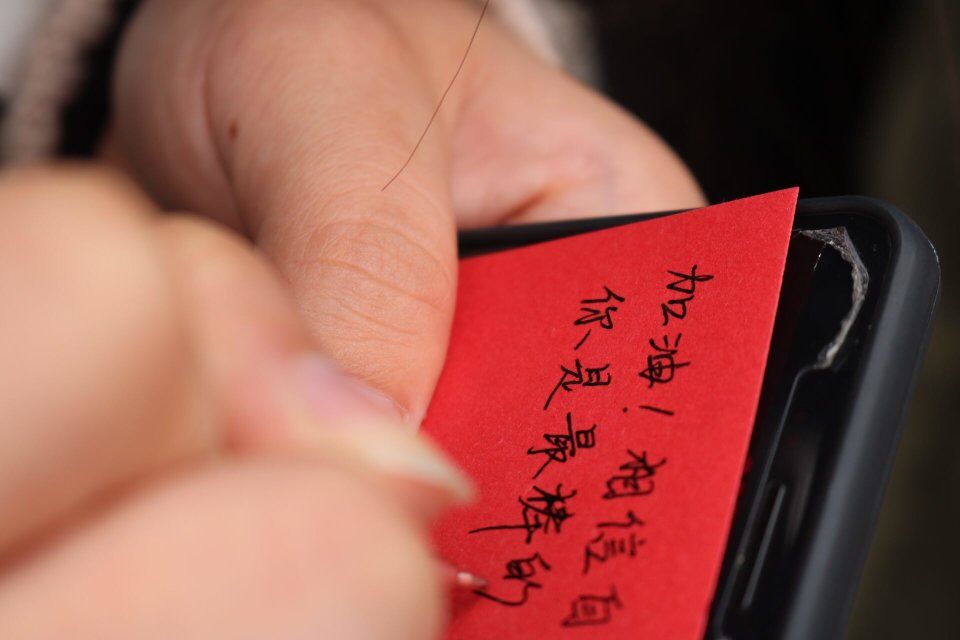 加油！相信自
你是最棒的